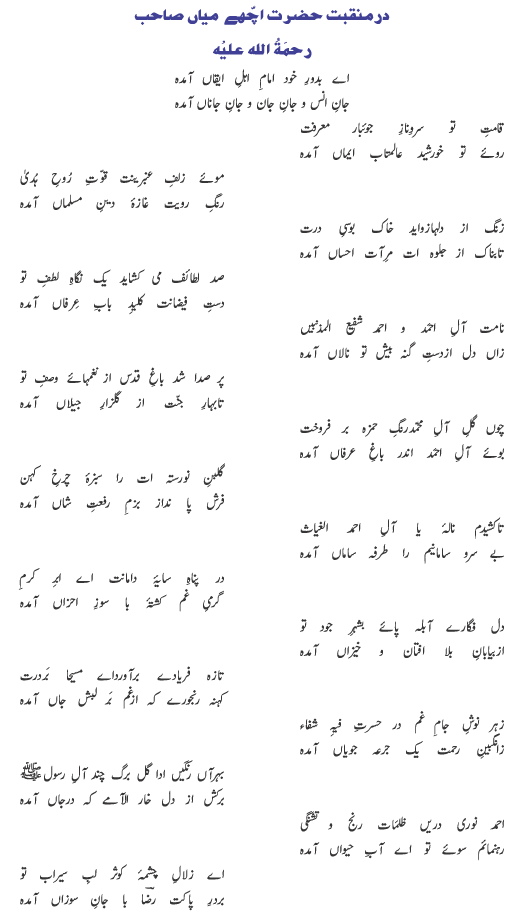 درمنقبت حضرت اچّھے میاں صاحب
رحمۃُ اللہ علیْہ
اے بدورِ خود امامِ اہلِ ایقاں آمدہ
جانِ انس و جانِ جان و جانِ جاناں آمدہ
قامتِ تو سروِنازِ جوئبار معرفت
روئے تو خورشید عالمتاب ایماں آمدہ
موئے زلفِ عنبرینت قوّتِ رُوحِ ہُدیٰ
رنگِ رویت غازۂ دینِ مسلماں آمدہ
زنگ از دلہازواید خاک بوسیِ درت
تابناک از جلوہ ات مرآت احساں آمدہ
صد لطائف می کشاید یک نگاہِ لطفِ تو
دستِ فیضانت کلیدِ بابِ عِرفاں آمدہ
نامت آلِ احمَد و احمد شفیع المذنبیں
زاں دل ازدستِ گنہ بیش تو نالاں آمدہ
پر صدا شد باغِ قدس از نغمہائے وصفِ تو
تابہارِ جنّت از گلزارِ جیلاں آمدہ
چوں گلِ آلِ محمّدرنگِ حمزہ بر فروخت
بوئے آلِ احمَد اندر باغِ عرفاں آمدہ
گلبنِ نورستہ ات را سبزۂ چرخِ کہن
فرش پا نداز بزمِ رفعتِ شاں آمدہ
تاکشیدم نالۂ یا آلِ احمد الغیاث
بے سرو سامانیم را طرفہ ساماں آمدہ
در پناہِ سایۂ دامانت اے ابرِ کرم
گرمیِ غم کشتۂ با سوزِ احزاں آمدہ
دل فگارے آبلہ پائے بشہرِ جود تو
ازبیابانِ بلا افتان و خیزاں آمدہ
تازہ فریادے برآورداے مسیحا بَردرت
کہنہ رنجورے کہ ازغم بَر لبش جاں آمدہ
زہر نوشِ جامِ غم در حسرتِ فیہِ شفاء
زانگبینِ رحمت یک جرعہ جویاں آمدہ
بہرآں رنگیں ادا گل برگ چند آلِ رسول ﷺ
برکش از دل خار الآمے کہ درجاں آمدہ
احمد نوری دریں ظلمات رنج و تشنگی
رہنمائم سوئے تو اے آبِ حیواں آمدہ
اے زلالِ چشمۂ کوثر لبِ سیراب تو
بردرِ پاکت رضؔا با جانِ سوزاں آمدہ